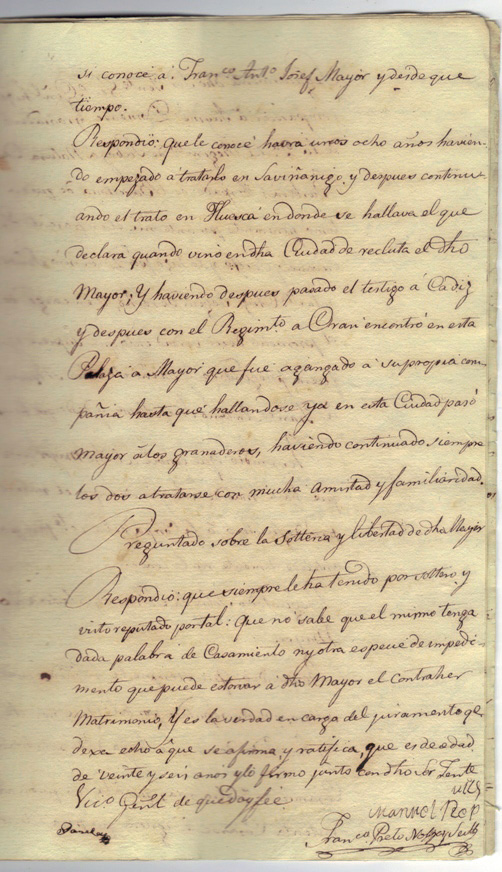 si conoce à: Franco. Anto. Josef Mayor y desde que
tiempo.
Respondio: que le conoce havra unos ocho años havien-
do empezado à tratarlo en Saviñanigo y despues continu-
ando el trato en Huesca en donde se hallava el que
declara quando vino en dha Ciudad de recluta el dho
Mayor; Y haviendo despues pasado el testigo à Cadiz
y despues con el Regimto a Oran encontró en esta
Plaza a Mayor que fue agregado a su propia com-
pañia hasta que hallandose ya en esta Ciudad pasó
Mayor á los granaderos, haviendo continuado siempre
los dos a tratarse con mucha amistad y familiaridad.
Preguntado sobre la Solteria y libertad de dho Mayor
Respondió: que siempre le ha tenido por soltero y
visto reputado por tal: Que no sabe que el mismo tenga
dada palabra de Casamiento ny otra especie de impedi-
mento que puede estorvar á dho Mayor el contraher
Matrimonio, Y es la verdad en carga del juramento qe.
dexa echo à que se afirma y ratifica, que es de edad
de veinte y seis anos y lo firmo junto con dho Sr Tente
Vico Genl. de que doy fee
Manuel
Franco. Prieto